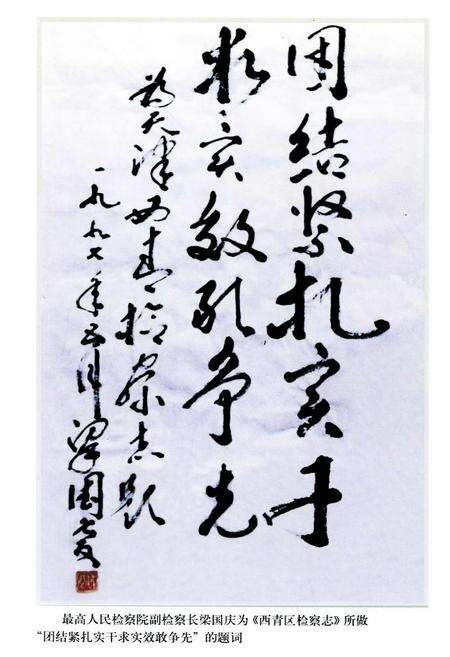 团结紧扎实干
求实效敢争先
为天津西青检察志题
一九九七年五月梁国庆
最高人民检察院副检察长梁国庆为《西青区检察志》所做
“团结紧扎实干求实效敢争先”的题词